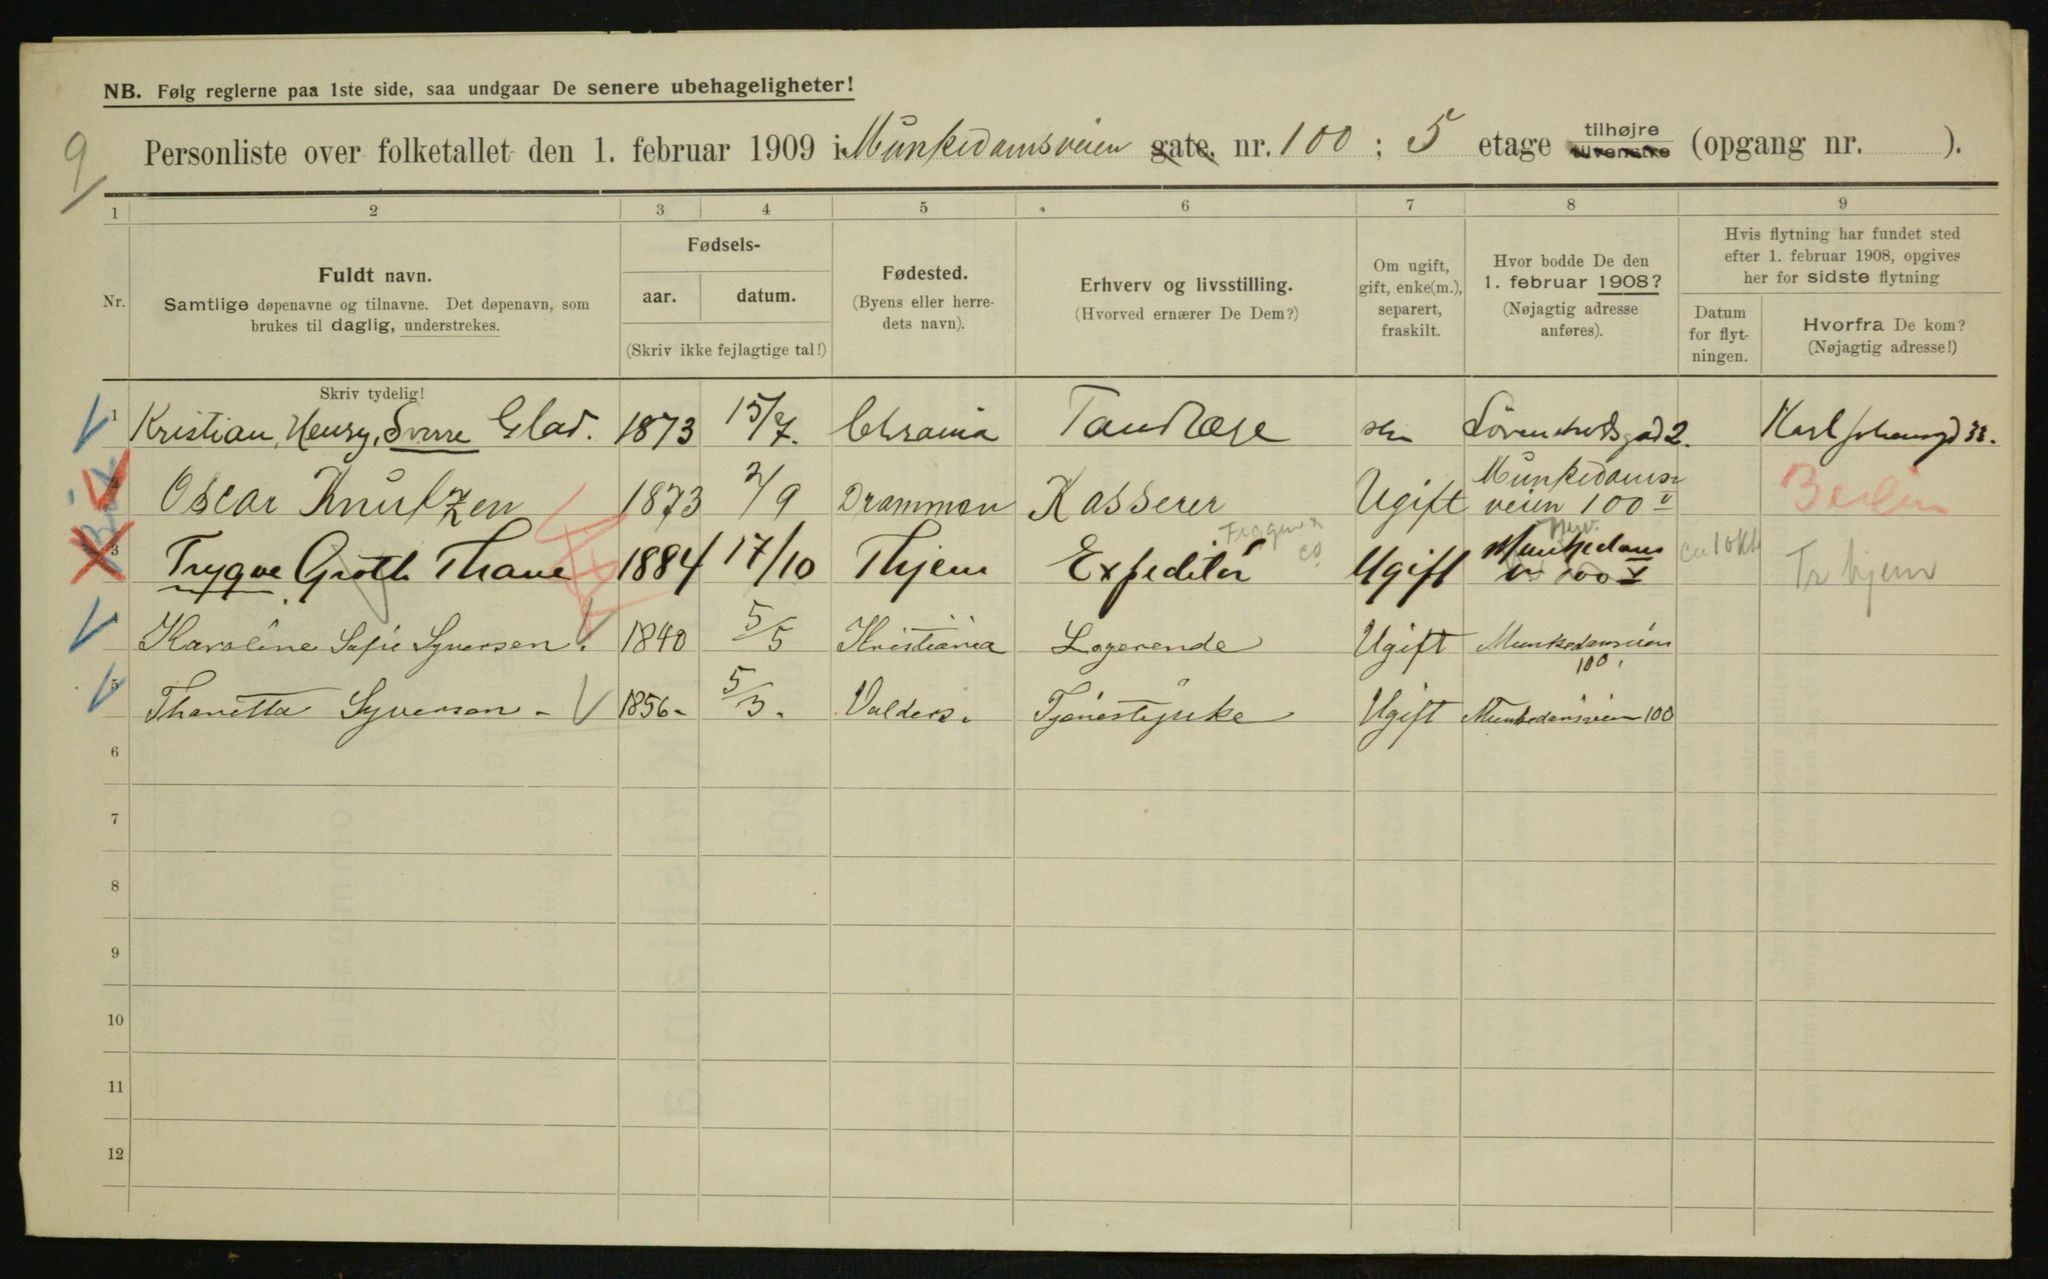 NB. Følg reglerne paa 1ste side, saa undgaar De senere ubehageligheter!
9
Personliste over folketallet den 1. februar 1909 i Munkedamsveien gate, nr. 100 ; 5 etage tilhøjre tilvenstre (opgang nr. ).
1 2 3 4 5 6 7 8 9
Nr.
Fuldt navn.
Samtlige døpenavne og tilnavne. Det døpenavn, som
brukes til daglig, understrekes.
Skriv tydelig!
Fødsels-
aar. datum.
(Skriv ikke fejlagtige tal!)
Fødested.
(Byens eller herre-
dets navn).
Erhverv og livsstilling.
(Hvorved ernærer De Dem?)
Om ugift,
gift, enke(m.),
separert,
fraskilt.
Hvor bodde De den
1. februar 1908?
(Nøjagtig adresse
anføres).
Hvis flytning har fundet sted
efter 1. februar 1908, opgives
her for sidste flytning
Datum
for flyt-
ningen.
Hvorfra De kom?
(Nøjagtig adresse!)
1 Kristian, Henry, Sverre Glad. 1873 15/7. Chrania Tandlæge 2.
2 Oscar Knutzen 1873 2/9 Drammen Kasserer Ugift Munkedams-
veien 100 V Berlin
3 Trygve Groth Thane 1884 17/10 Thjem Expeditør Ugift Munkedams
v 100 V ca 10 Tr hjem
4 Karoline Sofie Syversen. 1840 5/5 Kristiania Logerende Ugift Munkedamsveien
100,
5 Thonetta Syversen - 1856- 5/3. Valders. Tjenestepike Ugift Munkedamsveien 100
6
7
8
9
10
11
12